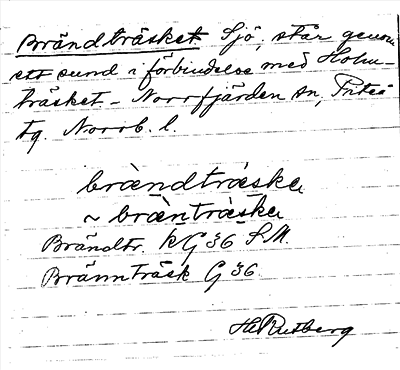 Brändträsket. Sjö, står genom
ett sund i förbindelse med Holm-
träsket. - Norrfjärden sn, Piteå
tg. Norrb. l.
brändträske
~ bränträske
Brändtr. kG36 S.M.
Brännträsk G36.
H. Rutberg